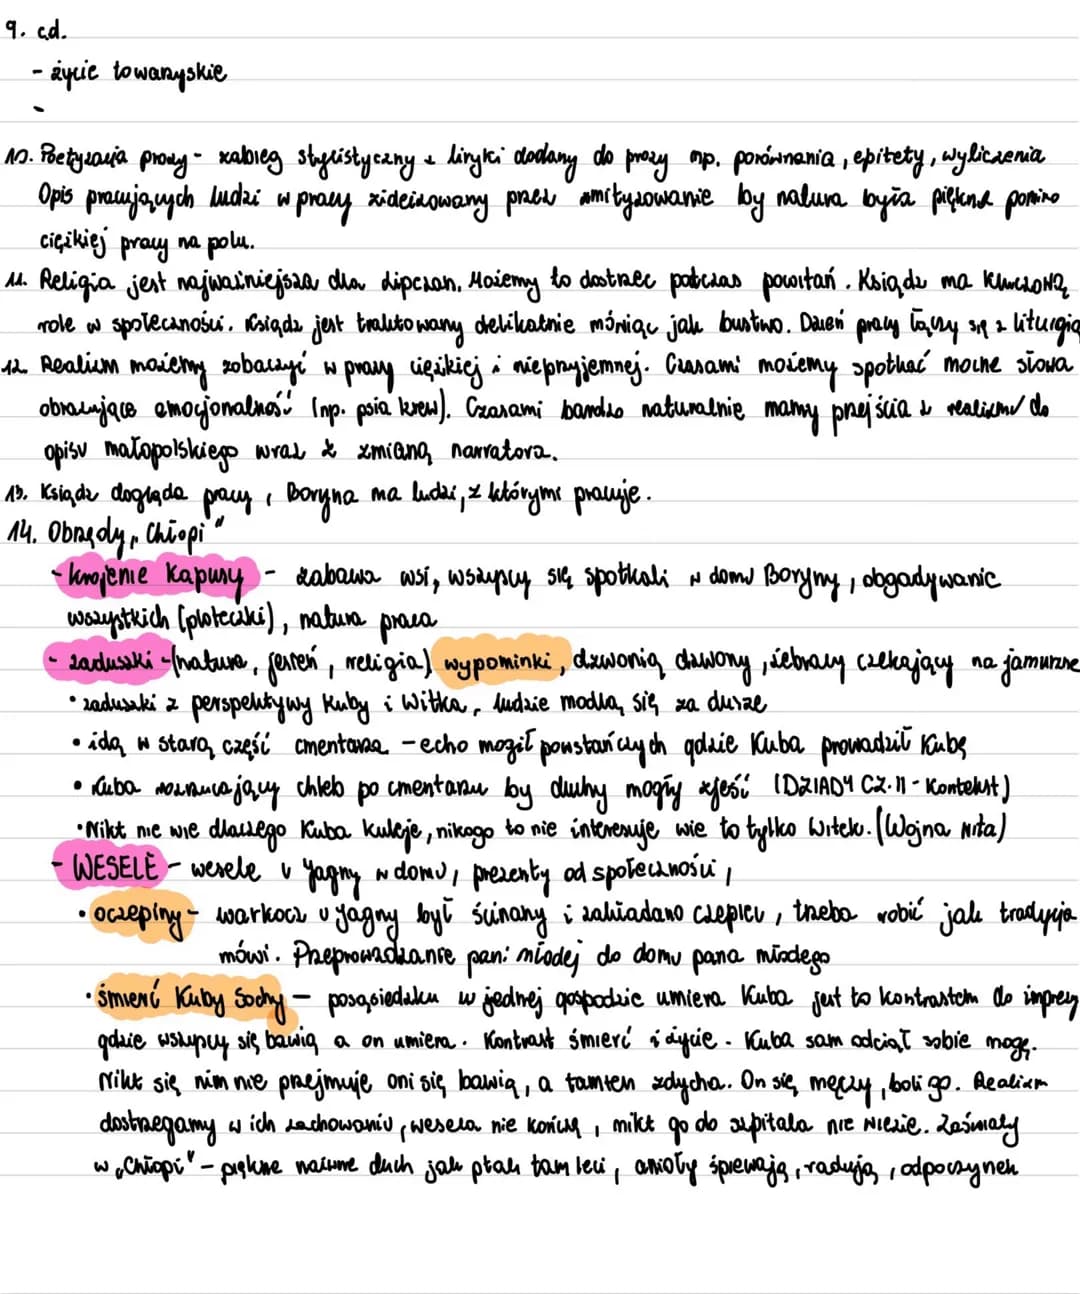 9. cd.
- życie towarzyskie
-
10. Poetyzacja prozy - zabieg stylistyczny z liryki dodany do prozy np. porównania, epitety, wyliczenia
Opis pracujących ludzi w pracy zideizowany przez by natura była piękna pomimo
ciężkiej pracy na polu.
11. Religia jest najważniejsza dla lipczan. Możemy to dostrzec podczas powitań. Ksiądz ma kluczową
role w społeczności. Ksiądz jest traktowany delikatnie mówiąc jak bustwo. Dzień pracy łączy się z liturgią
12. Realizm możemy zobaczyć w pracy ciężkiej i nieprzyjemnej. Czasami możemy spotkać mocne słowa
obrazujące emocjonalność (np. psia krew). Czasami bardzo naturalnie mamy przejścia z realizmu do
opisu małopolskiego wraz z zmianą narratora.
13. Ksiądz dogląda pracy, Boryna ma ludzi, z którymi pracuje.
14. Obrzędy „Chłopi"
- krojenie kapusy - zabawa wsi, wszyscy się spotkali w domu Boryny, obgadywanie
wszystkich (ploteczki), natura praca
- zaduszki - (natura, jesień, religia) wypominki, dzwonią dzwony, żebracy czekający na
• zaduszki z perspektywy Kuby i Witka, ludzie modlą się za dusze
• idą w starą część cmentarza - echo mogił powstańczych gdzie Kuba prowadził Kubę
• Kuba rozrzucający chleb po cmentarzu by duchy mogły zjeść (DZIADY CZ. II - Kontekst)
• Nikt nie wie dlaczego Kuba kuleje, nikogo to nie interesuje wie to tylko Witek. (Wojna
- WESELE - wesele u Jagny w domu, prezenty od społeczności,
• oczepiny - warkocz u Jagny był ścinany i zakładano czepiec, trzeba robić jak tradycja
mówi. Przeprowadzanie pani młodej do domu pana młodego
• śmierć Kuby Sochy - w jednej gospodzie umiera Kuba jest to kontrastem do imprezy
gdzie wszyscy się bawią a on umiera. Kontrast śmierć i życie. Kuba sam odciął sobie nogę.
Nikt się nim nie przejmuje oni się bawią, a tamten zdycha. On się męczy, boli go. Realizm
dostrzegamy w ich zachowaniu, wesela nie kończą, nikt go do szpitala nie wiezie. Zaświaty
w „Chłopi" - piękne duch jak ptak tam leci, anioły śpiewają, radują, odpoczynek